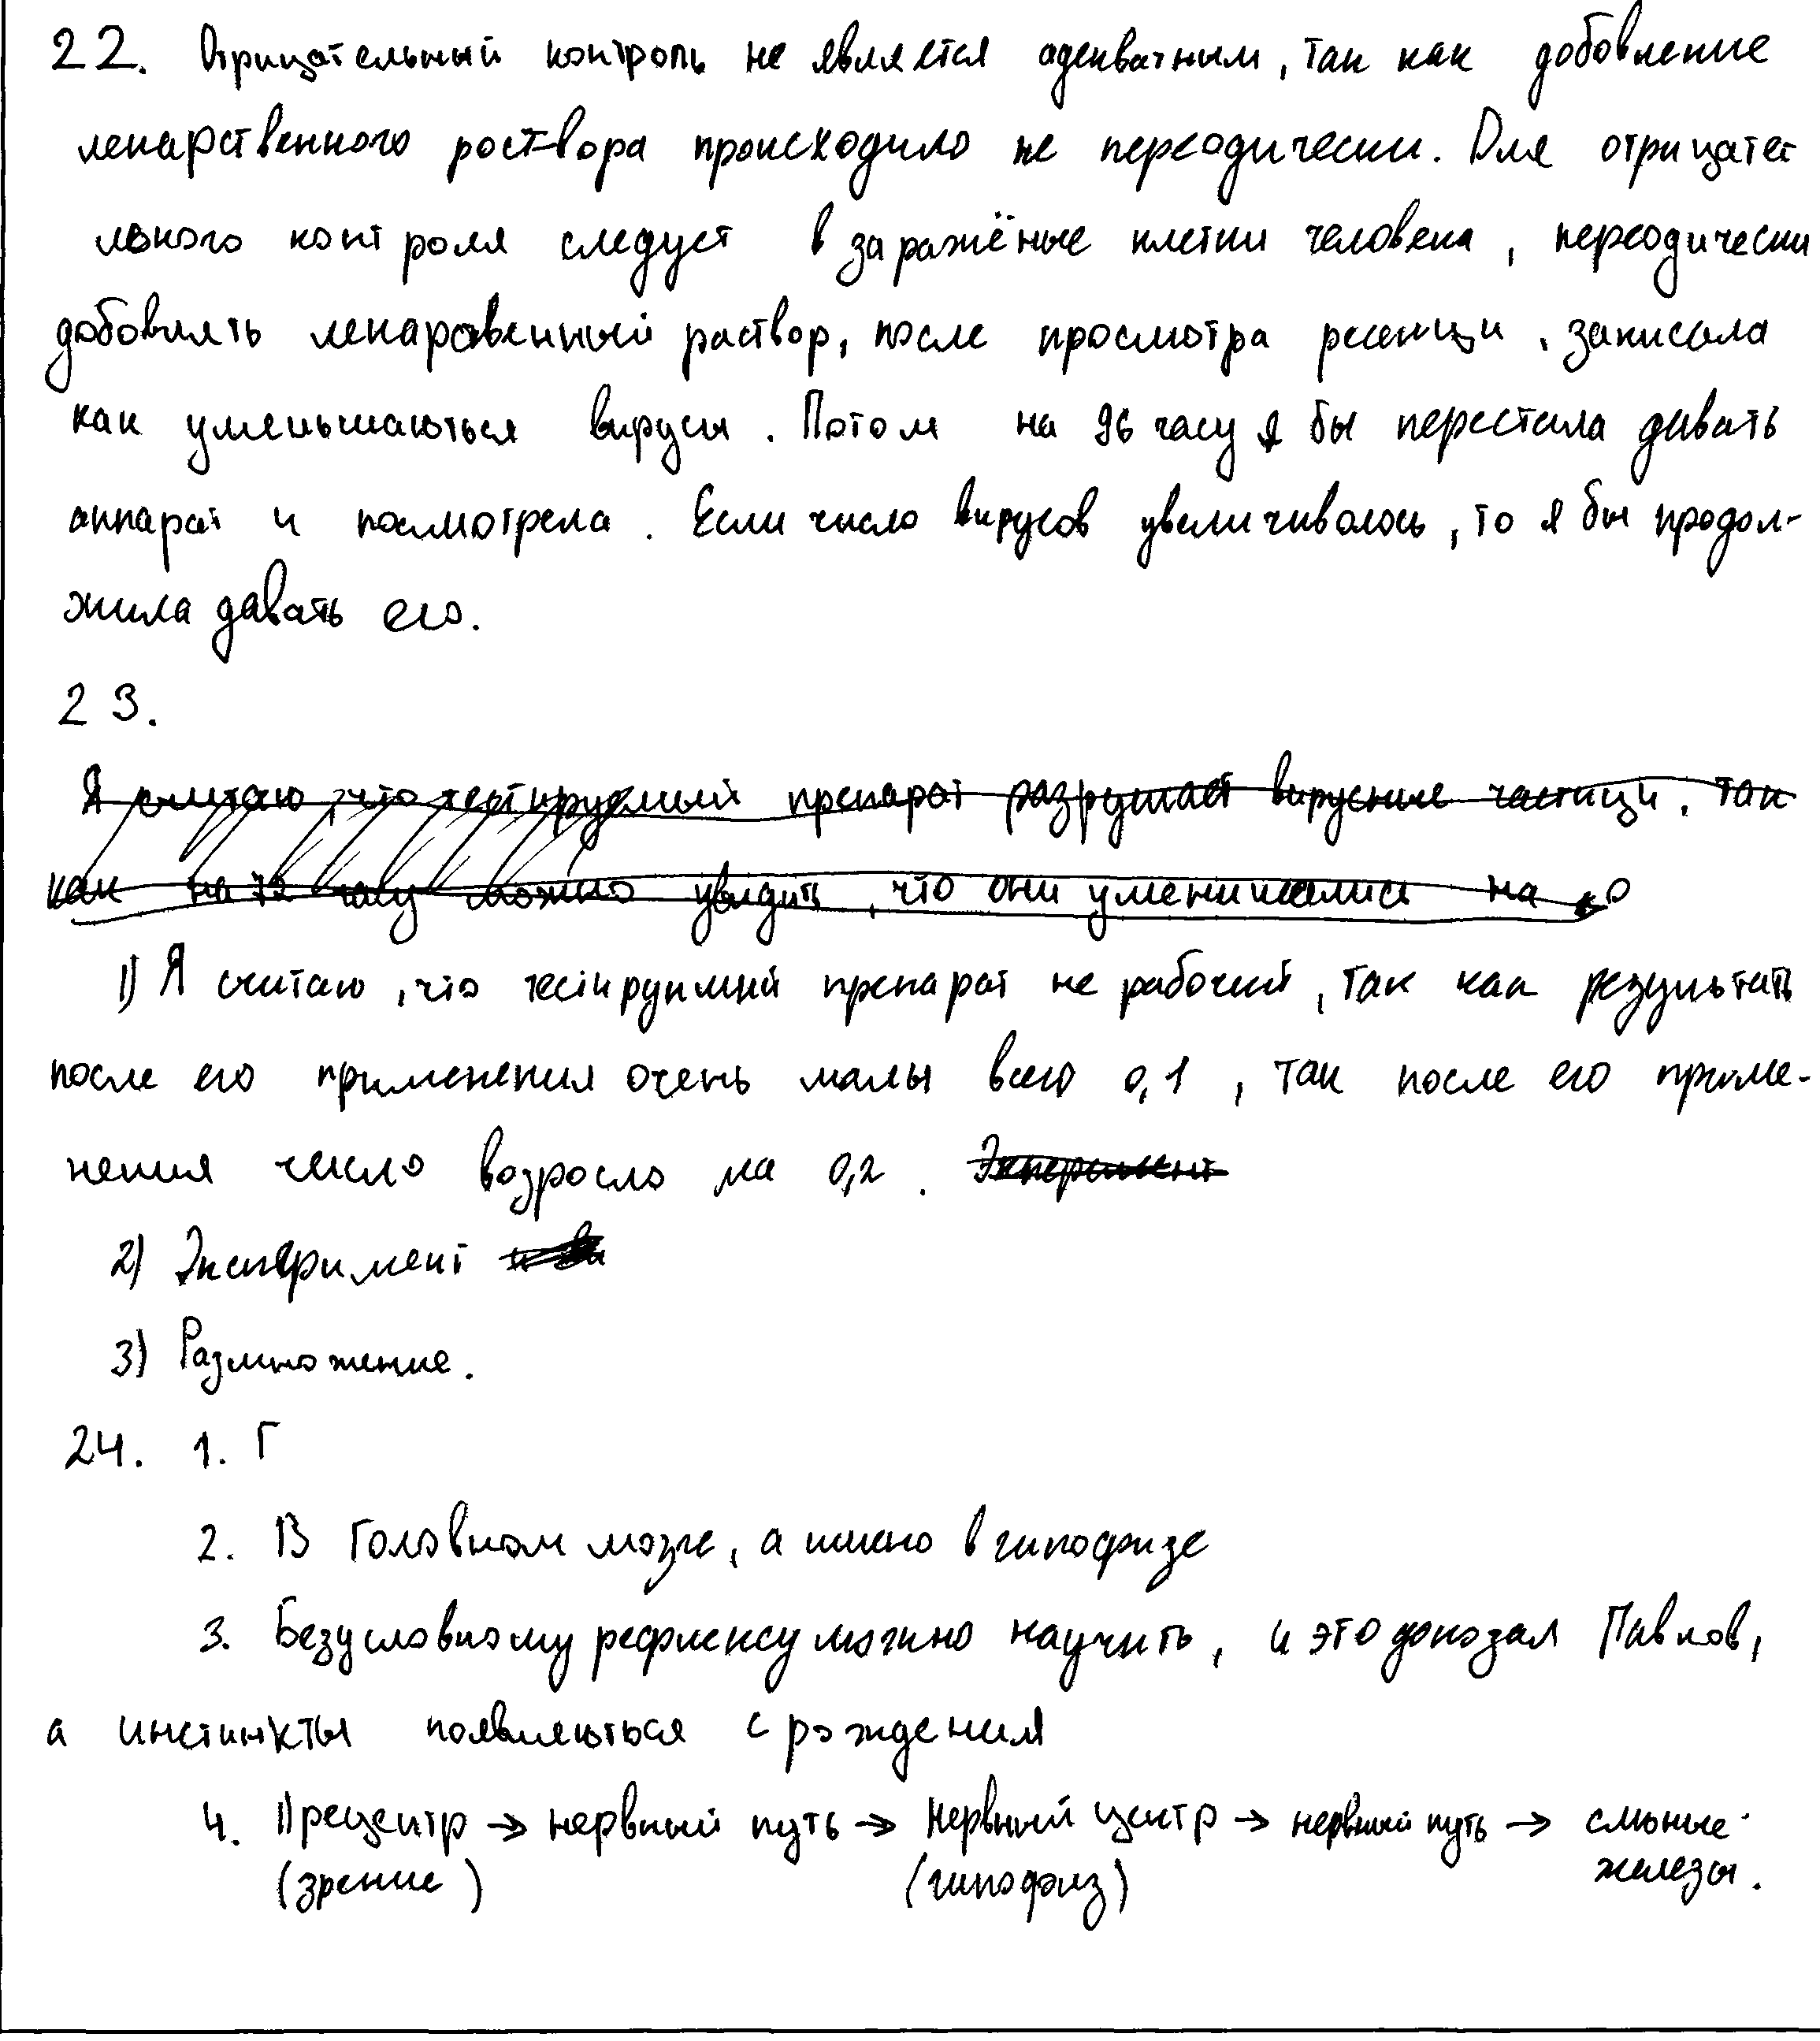 22. Отрицательный контроль не является адекватным, так как добовление
лекарственного роствора происходило не переодически. Для отрицател
льного контроля следует в заражёные клетки человека, переодически
добовлять лекарсвенный раствор, после просмотра
как уменьшаються вирусы. Потом на 96 часу я бы перестала давать
аппарат и посмотрела. Если число вирусов увеличиволось, то я бы продол-
жила давать его.
23.
Я считаю, что тестируемый препарат разрушает вирусные частицы, так
как на 72 часу можно увидить, что они уменишились на
1) Я считаю, что тестируимый препарат не рабочий, так как результаты
после его применения очень малы всего 0,1, так после его приме-
нения число возросло на 0,2. Эксперемент
2) Эксперимент
3) Размножение.
24. 1. Г
2. В головном мозге, а имено в гипофизе
3. Безусловному рефлексу можно научить, и это доказал Павлов,
а инстинкты появляються с рождения
4. 1) рецептр → нервный путь → Нервный центр → нервный путь → слюные
(зрение) (гипофиз) железы.